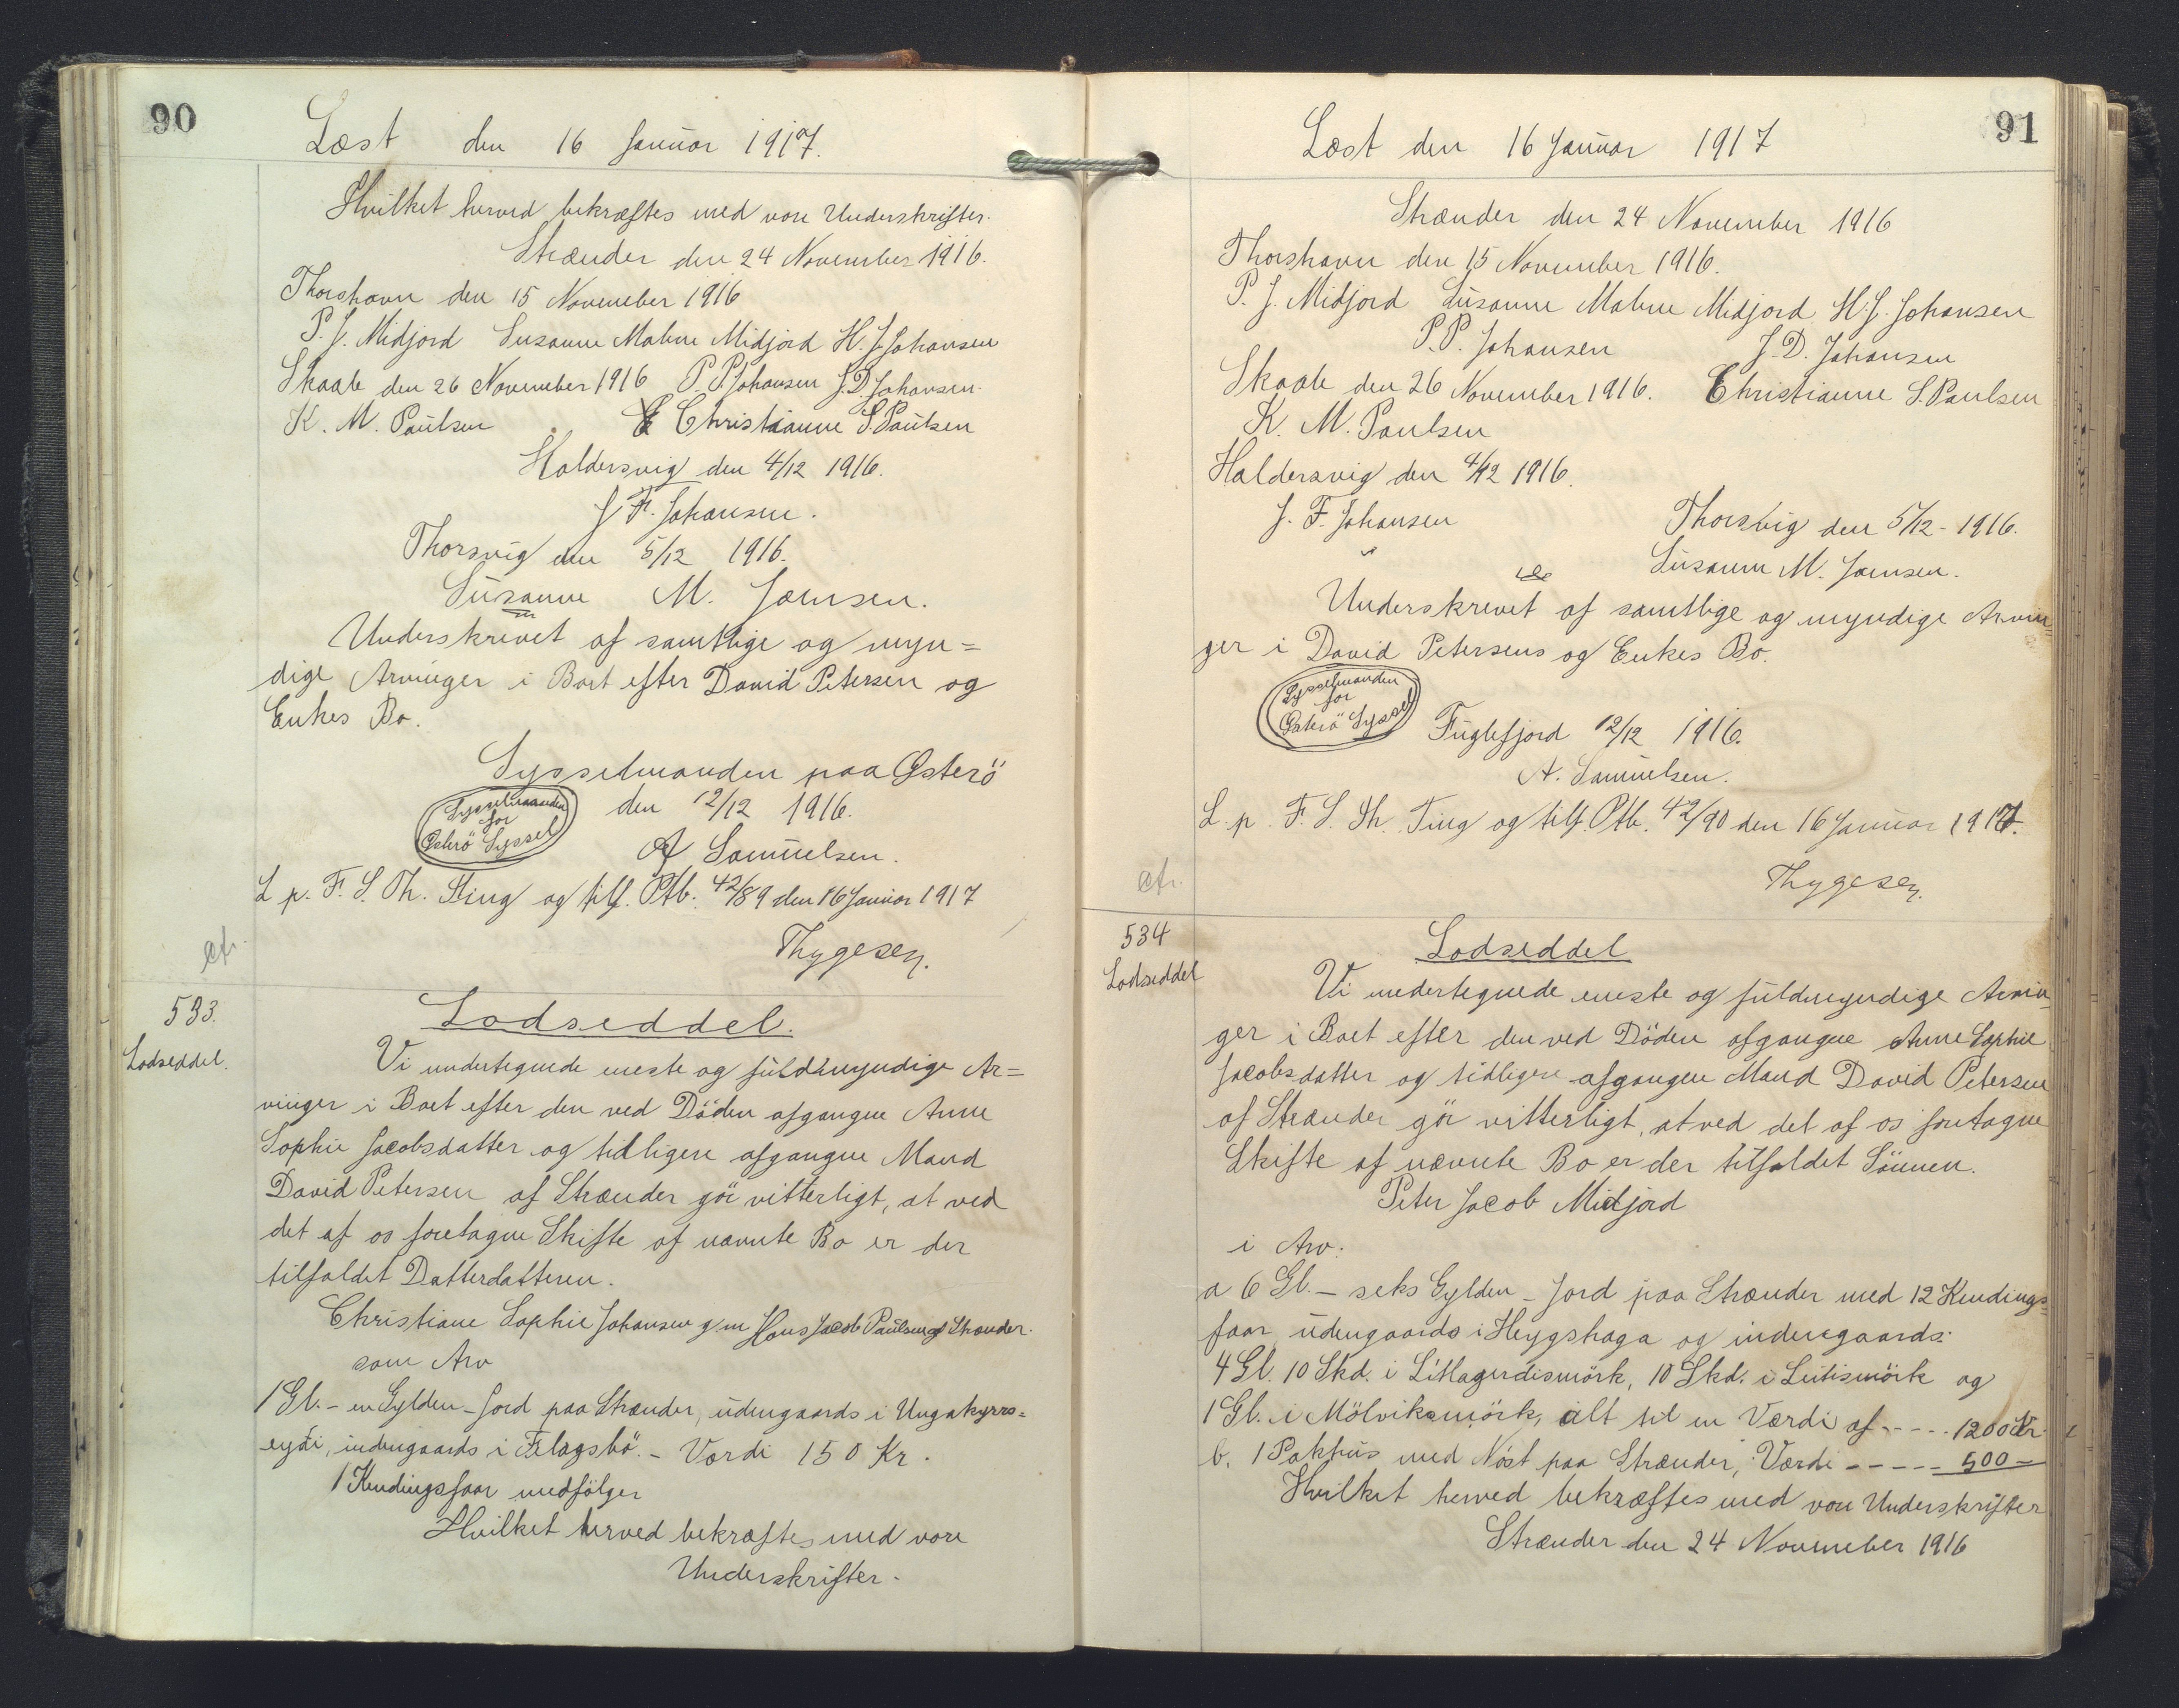 90
Læst den 16 Januar 1917.
Hvilket herved bekræftes med vore Underskrifter.
Strænder den 24 November 1916.
Thorshavn den 15 November 1916
P. J. Midjord Susanne Malene Midjord H. J. Johansen
Skaale den 26 November 1916 P. P. Johansen J. D. Johansen.
K. M. Paulsen Christianne S. Paulsen
Haldersvig den 4/12 1916.
J. F. Johansen.
Thorsvig den 5/12 1916.
Susanne M. Joensen.
Underskrevet af samtlige og myn=
dige Arvinger i Boet efter David Petersen og
Enkes Bo.
Sysselmanden paa Østerö
Sysselmanden
for
Østerö Syssel
den 12/12 1916.
A Samuelsen.
L p. F. S. Th. Ting og tilf. Ptb. 42/89 den 16 Januar 1917
Thygesen.
533.
Lodseddel.
Lodseddel.
Vi undertegnede eneste og fuldmyndige Ar=
vinger i Boet efter den ved Döden afgangne Anne
Sophie Jacobsdatter og tidligere afgangne Mand
David Petersen af Strænder gör vitterligt, at ved
det af os foretagne Skifte af nævnte Bo er der
tilfaldet Datterdatteren.
Christiane Sophie Johansen g. m Hans Jacob Paulsen af Strænder.
som Arv
1 Gl. - en Gylden - Jord paa Strænder, udengaards i Ungakyrrs=
eydi, indengaards i Flagsbö. - Værdi 150 Kr.
1 Kendingsfaar medfölger
Hvilket herved bekræftes med vore
Underskrifter.
91
Læst den 16 Januar 1917
Strænder den 24 November 1916
Thorshavn den 15 November 1916.
P. J. Midjord Susanne Malene Midjord H. J. Johansen
P. P. Johansen J. D. Johansen
Skaale den 26 November 1916. Christianne S. Paulsen
K. M. Paulsen
Haldersvig den 4/12 1916.
J. F. Johansen Thorsvig den 5/12 - 1916.
Susanne M. Joensen.
Underskrevet af samtlige og myndige Arvin=
ger i David Petersens og Enkes Bo.
Sysselmanden
for
Østerö Syssel
Fuglefjord 12/12 1916.
A. Samuelsen.
L. p. F. S. Th. Ting og tilf. Ptb. 42/90 den 16 Januar 1917.
Thygesen.
534
Lodseddel
Lodseddel
Vi undertegnede eneste og fuldmyndige Arvin
ger i Boet efter den ved Döden afgangne Anne Sophie
Jacobsdatter og tidligere afgangne Mand David Petersen
af Strænder gör vitterligt, at ved det af os foretagne
Skifte af nævnte Bo er der tilfaldet Sönnen.
Peter Jacob Midjord
i Arv:
a 6 Gl. - seks Gylden - Jord paa Strænder med 12 Kendings=
faar, udengaards i Heygshaga og indengaards:
4 Gl. 10 Skd. i Litlagerdismörk, 10 Skd. i Leitismörk og
1 Gl. i Mölviksmörk, alt til en Værdi af ---- 1200 Kr.
b. 1 Pakhus med Nöst paa Strænder, Værdi ----- 500 -
Hvilket herved bekræftes med vore Underskrifter
Strænder den 24 November 1916